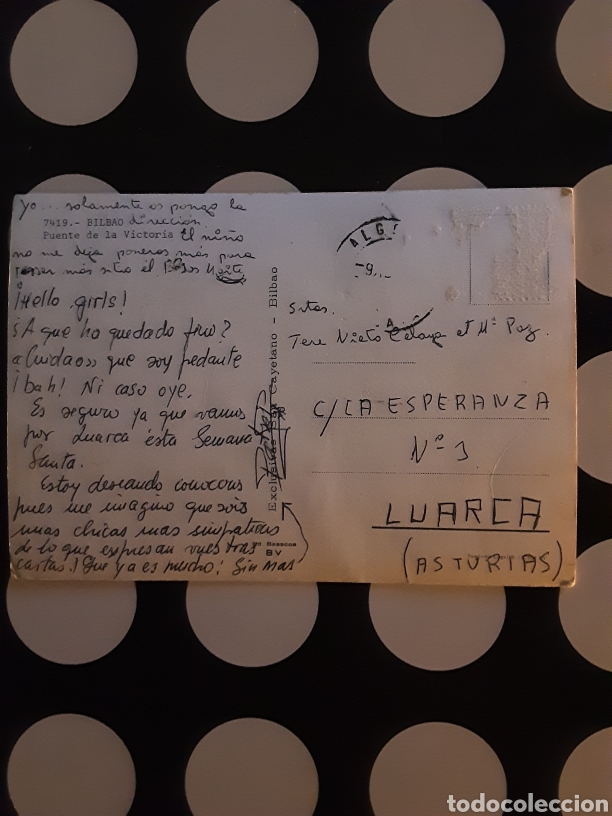 yo... solamente os pongo la
7419.- BILBAO dirección.
Puente de la Victoria El niño
no me deja poneros más para
más sitio él. Besos
¡Hello girls!
¿A que ha quedado fino?
Cuidaos que soy pedante
¡bah! Ni caso oye.
Es seguro ya que vamos
por Luarca ésta Semana
Santa.
Estoy deseando conoceros
pues me imagino que sois
unas chicas mas simpaticas
de lo que expresan vuestras
cartas. ¡Que ya es mucho! Sin mas
Exclusivas San Cayetano - Bilbao
BV
ALG
9
Srtas.
Tere Nieto Celaya et Mª Paz
C/ LA ESPERANZA
Nº 1
LUARCA
(ASTURIAS)
todocoleccion